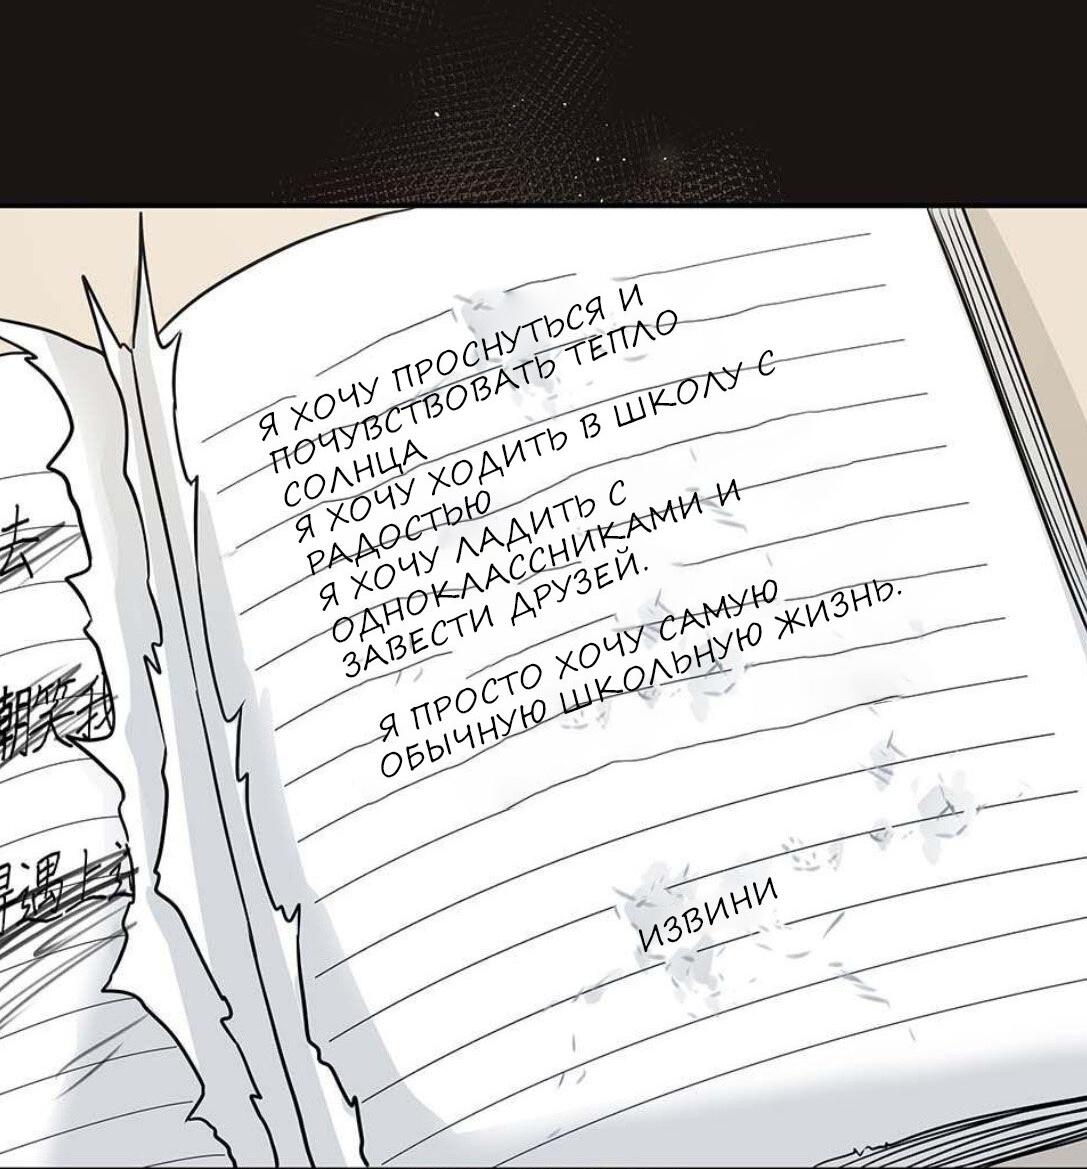 去
嘲笑我
得遇上
Я ХОЧУ ПРОСНУТЬСЯ И
ПОЧУВСТВОВАТЬ ТЕПЛО
СОЛНЦА
Я ХОЧУ ХОДИТЬ В ШКОЛУ С
РАДОСТЬЮ
Я ХОЧУ ЛАДИТЬ С
ОДНОКЛАССНИКАМИ И
ЗАВЕСТИ ДРУЗЕЙ.
Я ПРОСТО ХОЧУ САМУЮ
ОБЫЧНУЮ ШКОЛЬНУЮ ЖИЗНЬ.
ИЗВИНИ